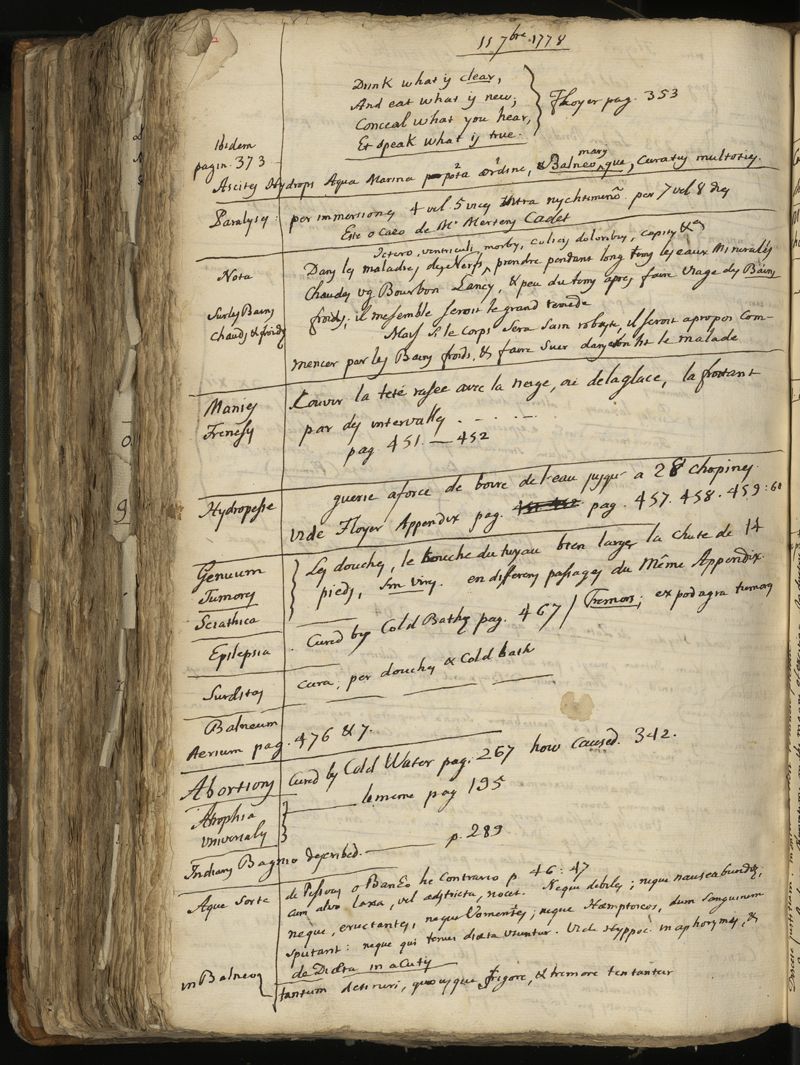 11 7bre 1778
Drink what is clear,
And eat what is new;
Conceal what you hear,
Et speak what is true.
Floyer pag. 353
Ibidem
pagin. 373
Ascites Hydrops Aqua Marina pota ordine, & Balneo mary que, curatus multoties.
Paralyses: per immersiones 4 vel 5 vices intra nycthimero per 7 vel 8 dies
Este o Caso de Mr. Mertens Cadet
Ictero, ventriculi morbis, colicis doloribus, capitis &a
Nota
Sur les Bains
Chauds & froids
Dans les maladies des Nerfs prendre pendant long tems les eaux Minerales
Chaudes vg Bourbon Lancy, & peu du tems apres faire usage des Bains
froids; il me semble seroit le grand remede
Mais si le Corps sera sain robuste, il seroit apropos Com-
mencer par les Bains froids, & faire suer dans son lit le malade
Manies
Frenesies
Couvrir la teté rasée avec la neige, ou de la glace, la frottant
par des intervalles . - . - . -
pag. 451. — 452
Hydropesie
guerie a force de boire de l'eau jusqu' a 28 chopines.
vide Floyer Appendix pag. 451 452 pag. 457. 458. 459: 60
Genuum
Tumores
Sciathica
Les douches, le bouche du tuyau bien large, la chute de 14
pieds, en differens passages du Même Appendix.
Epilepsia
Cured by Cold Baths pag. 467 / Tremors; ex podagra tumores
Surditas
cura, per douches & Cold bath
Balneum
Aerium pag. 476 & 7.
Abortions
Cured by Cold Water pag. 267 how caused. 342.
Atrophia
Universalis
le meme pag 195
Indians Bagnio described. p. 289
Aque Sorte
de Pessoas o Banho he Contrario p 46: 47
cum alvo laxa, vel adstricta, nocet. Neque debiles; neque nauseabundes,
neque, eructantes, neque Vomentes; neque Hæmptoicos, dum sanguinem
sputant: neque qui tenui diæta utuntur. Vide Hyppoc. in aphorymes, &
de Diæta in acutis
in Balneo
tantum detineri, quousque frigore, & tremore tentantur